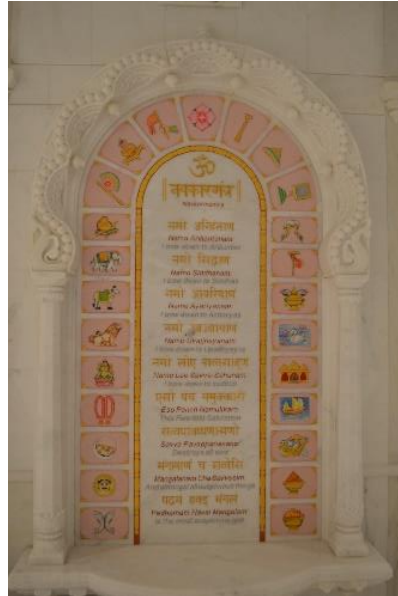 ॐ
नवकारमंत्र
Navkarmantra
नमो अरिहंताणं
Namo Arihantanam
I bow down to Arihantas
नमो सिद्धाणं
Namo Siddhanam
I bow down to Siddhas
नमो आयरियाणं
Namo Ayariyanam
I bow down to Acharyas
नमो उवज्झायाणं
Namo Uvajjhayanam
I bow down to Upadhyayas
नमो लोए सव्वसाहूणं
Namo Loe Savva Sahunam
I bow down to Sadhus
एसो पंच नमुक्कारो
Eso Panch Namukkaro
This Fivefold Salutation
सव्वपावप्पणासणो
Savva Pavappanasano
Destroys all sins
मंगलाणं च सव्वेसिं
Mangalanam Cha Savvesim
And amongst all auspicious things
पढमं हवइ मंगलं
Padhamam Havai Mangalam
is the most auspicious